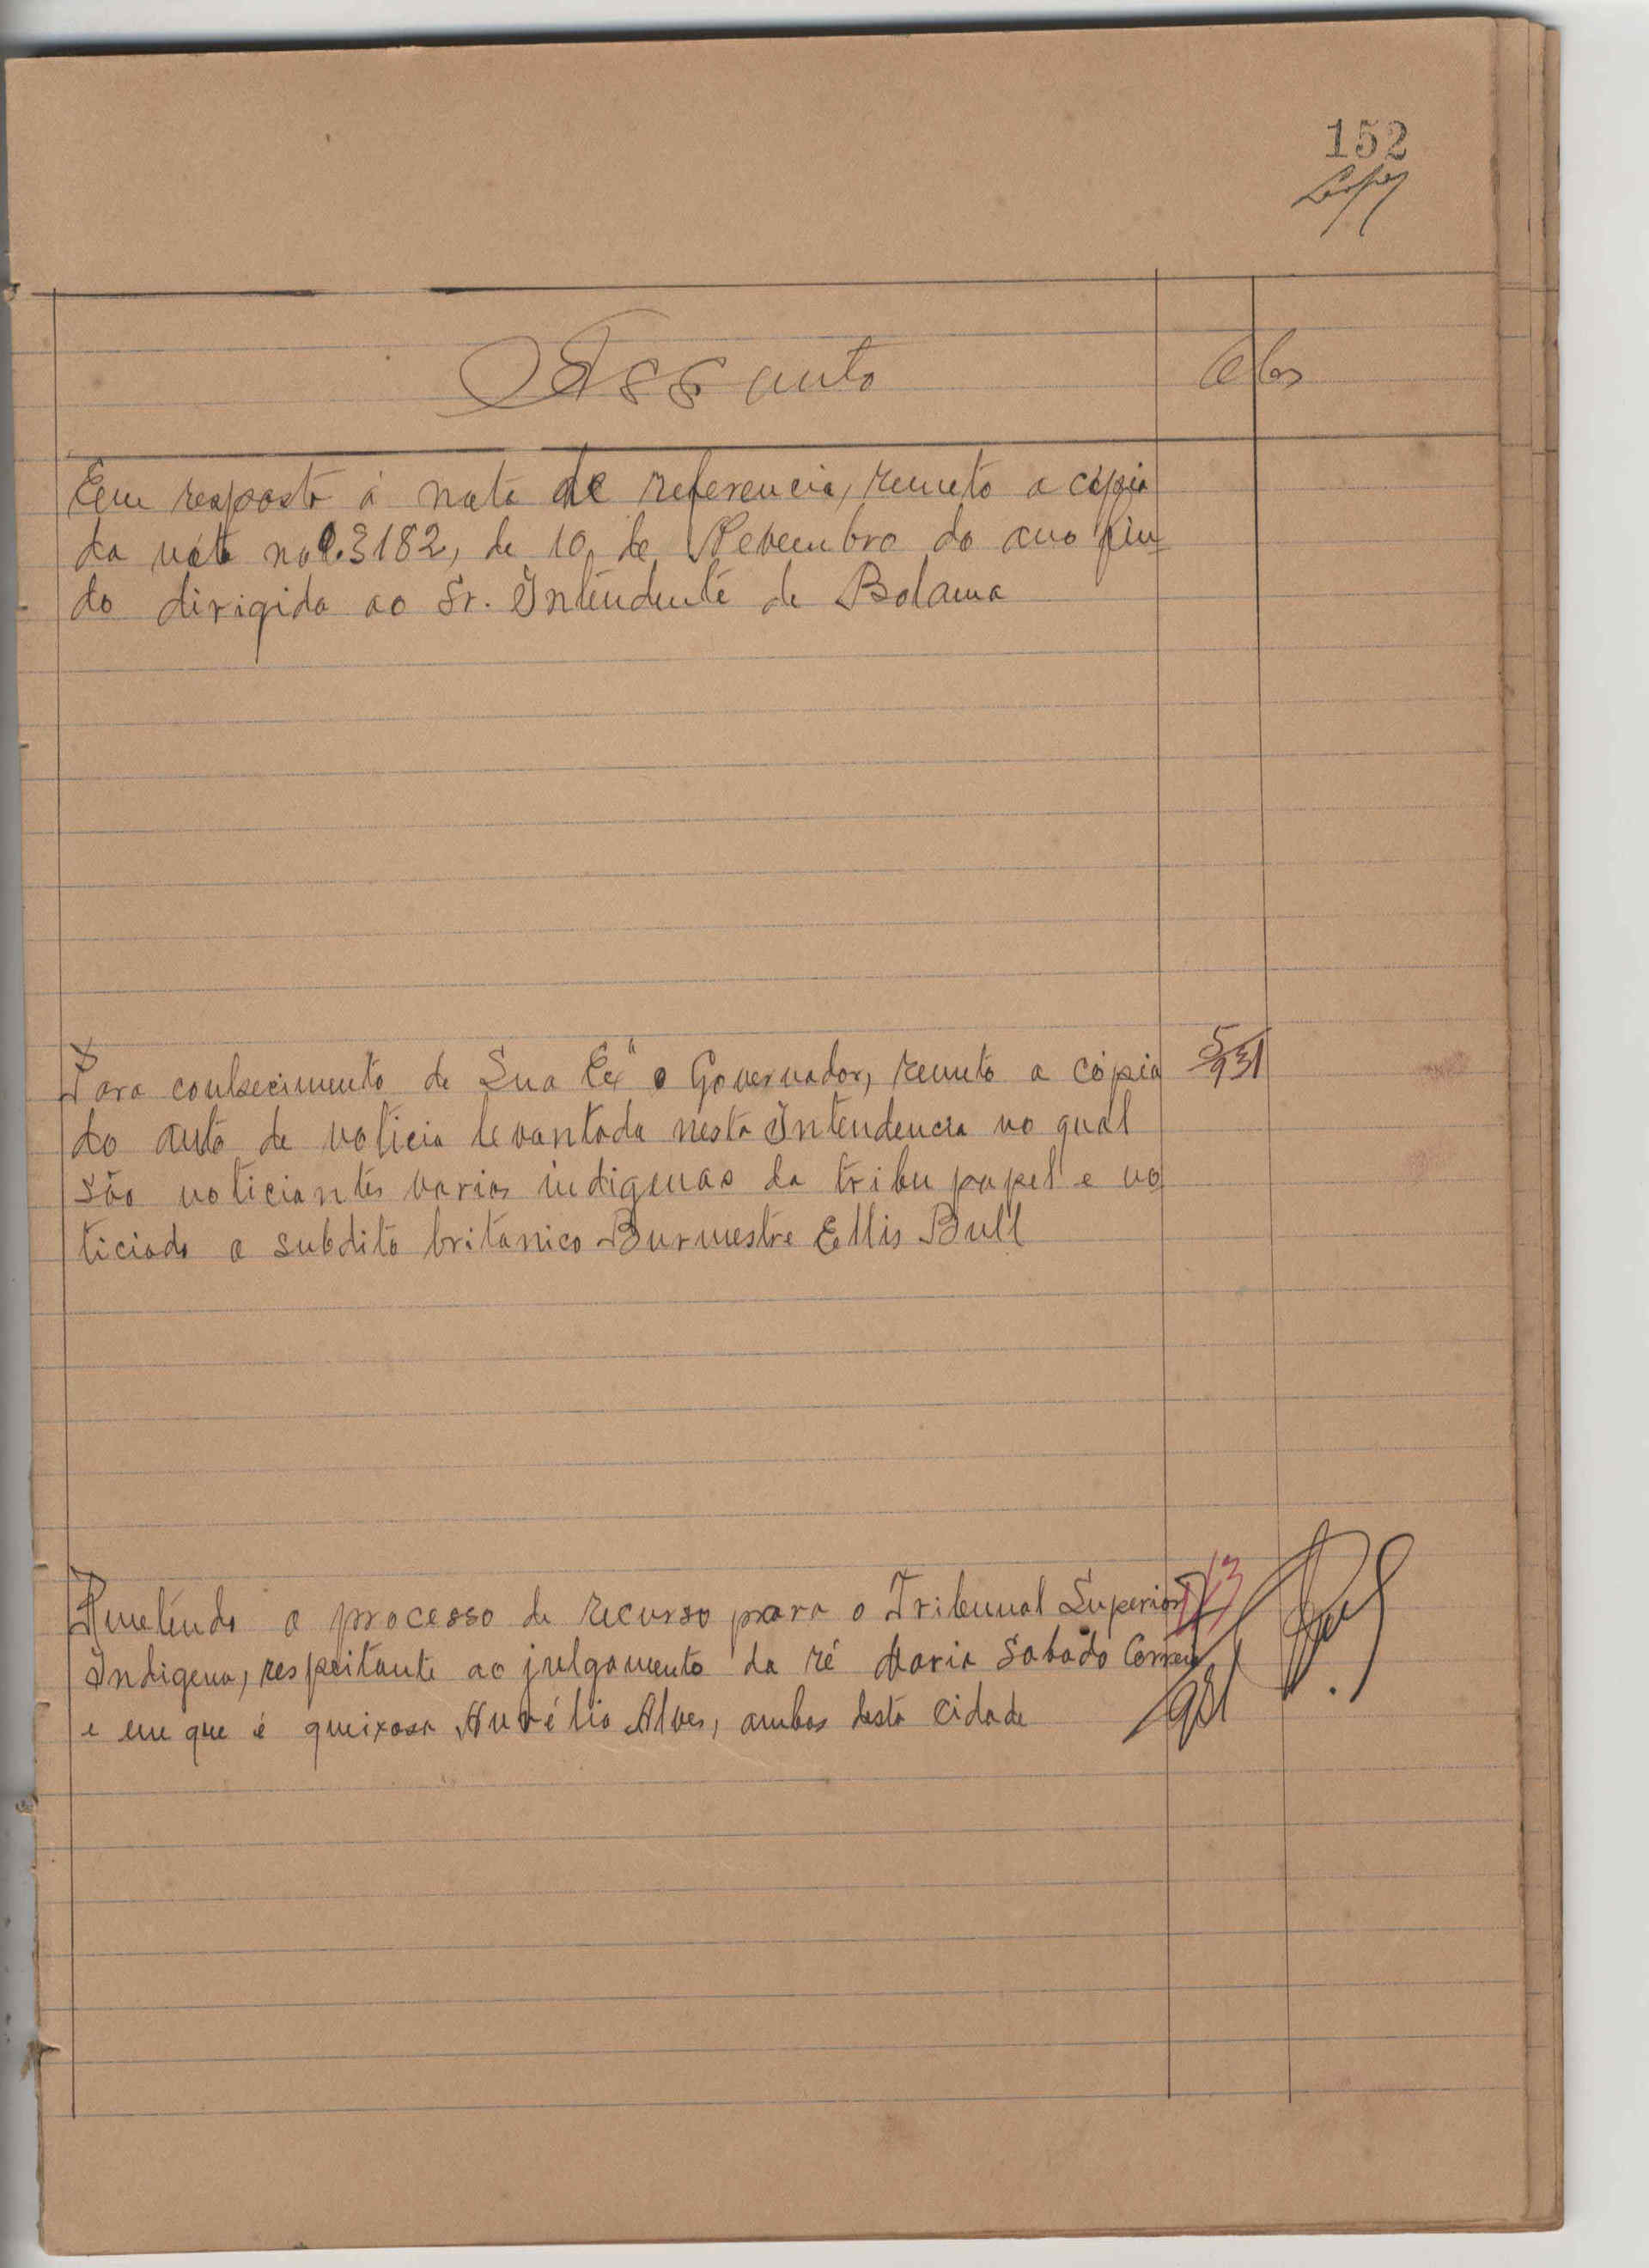 152
Lopes
Assunto
Obs
Em resposta á nota de referencia, remeto a cópia
da nota no 3182, de 10, de Novembro do ano fin
do dirigida ao Sr. Intendente de Bolama
Para conhecimento de Sua Exª o Governador, remeto a cópia
5/931
do auto de noticia levantado nesta Intendencia no qual
são noticiantes varios indigenas da tribu papel e no
ticiado o subdito britanico Burmestre Ellis Bull
Remetendo o processo de recurso para o Tribunal Superior
Indigena, respeitante ao julgamento da ré Maria Sabado Correia
e em que é queixosa Aurélia Alves, ambas desta cidade
931